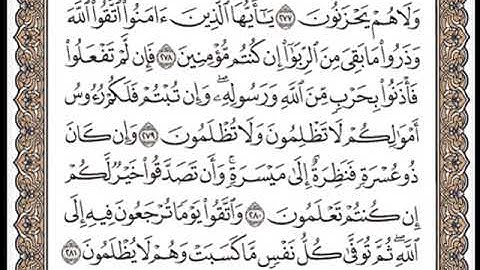 وَلَا هُمْ يَحْزَنُونَ ۝٢٧٧ يَـٰٓأَيُّهَا ٱلَّذِينَ ءَامَنُوا۟ ٱتَّقُوا۟ ٱللَّهَ
وَذَرُوا۟ مَا بَقِىَ مِنَ ٱلرِّبَوٰٓا۟ إِن كُنتُم مُّؤْمِنِينَ ۝٢٧٨ فَإِن لَّمْ تَفْعَلُوا۟
فَأْذَنُوا۟ بِحَرْبٍ مِّنَ ٱللَّهِ وَرَسُولِهِۦ ۖ وَإِن تُبْتُمْ فَلَكُمْ رُءُوسُ
أَمْوَٰلِكُمْ لَا تَظْلِمُونَ وَلَا تُظْلَمُونَ ۝٢٧٩ وَإِن كَانَ
ذُو عُسْرَةٍ فَنَظِرَةٌ إِلَىٰ مَيْسَرَةٍ ۚ وَأَن تَصَدَّقُوا۟ خَيْرٌ لَّكُمْ
إِن كُنتُمْ تَعْلَمُونَ ۝٢٨٠ وَٱتَّقُوا۟ يَوْمًا تُرْجَعُونَ فِيهِ إِلَى
ٱللَّهِ ۖ ثُمَّ تُوَفَّىٰ كُلُّ نَفْسٍ مَّا كَسَبَتْ وَهُمْ لَا يُظْلَمُونَ ۝٢٨١